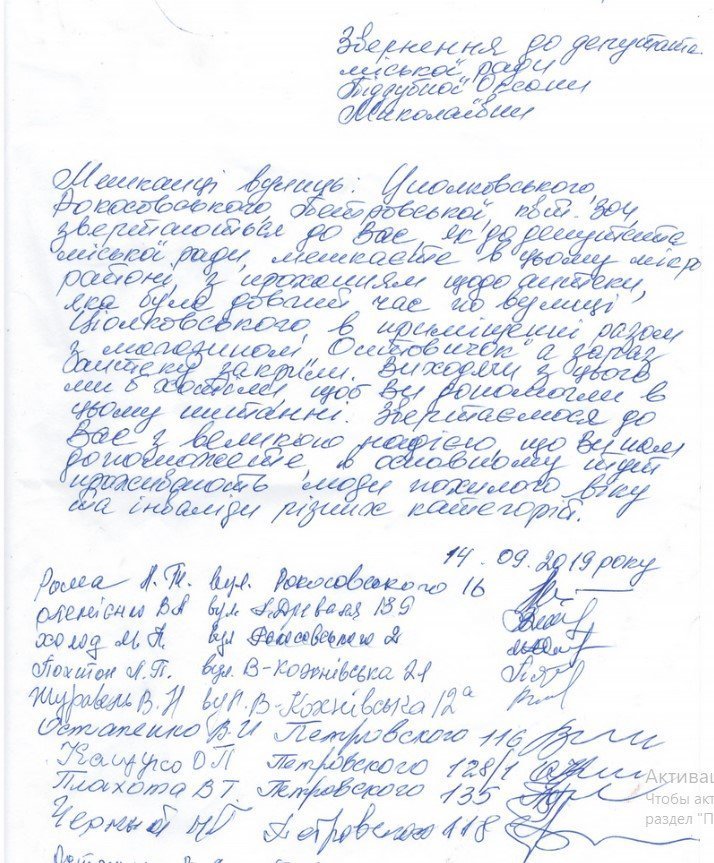 Звернення до депутата
міської ради
Піддубної Оксани
Миколаївни
Мешканці вулиць: Циолковського
Рокосовського, Петровської,
звертаються до Вас, як до депутата
міської ради, мешкаєте в цьому мікро
районі, з проханням щодо аптеки,
яка була довгий час по вулиці
Ціолковського, в приміщенні разом
з магазином "Островичок" а зараз
аптеку закрили. Виходячи з цього
ми б хотіли, щоб Ви допомогли в
цьому питанні. Звертаємося до
Вас з великою надією, що Ви нам
допоможете, в основному тут
проживають люди похилого віку
та інваліди різних категорій.
14.09.2019 року
Рома Л.Т. вул. Рокосовського 16
В.А вул. 139
Холод М.П. вул 2
Л.П. вул. В-Кохнівська 21
Журавель В.Н вул. В-Кохнівська 12а
Остапенко В.И Петровского 116
Кацурсо О П Петровского 128/1
Плахота В Т Петровского 135
Черный Петровского 118
Активац
Чтобы акт
раздел "П